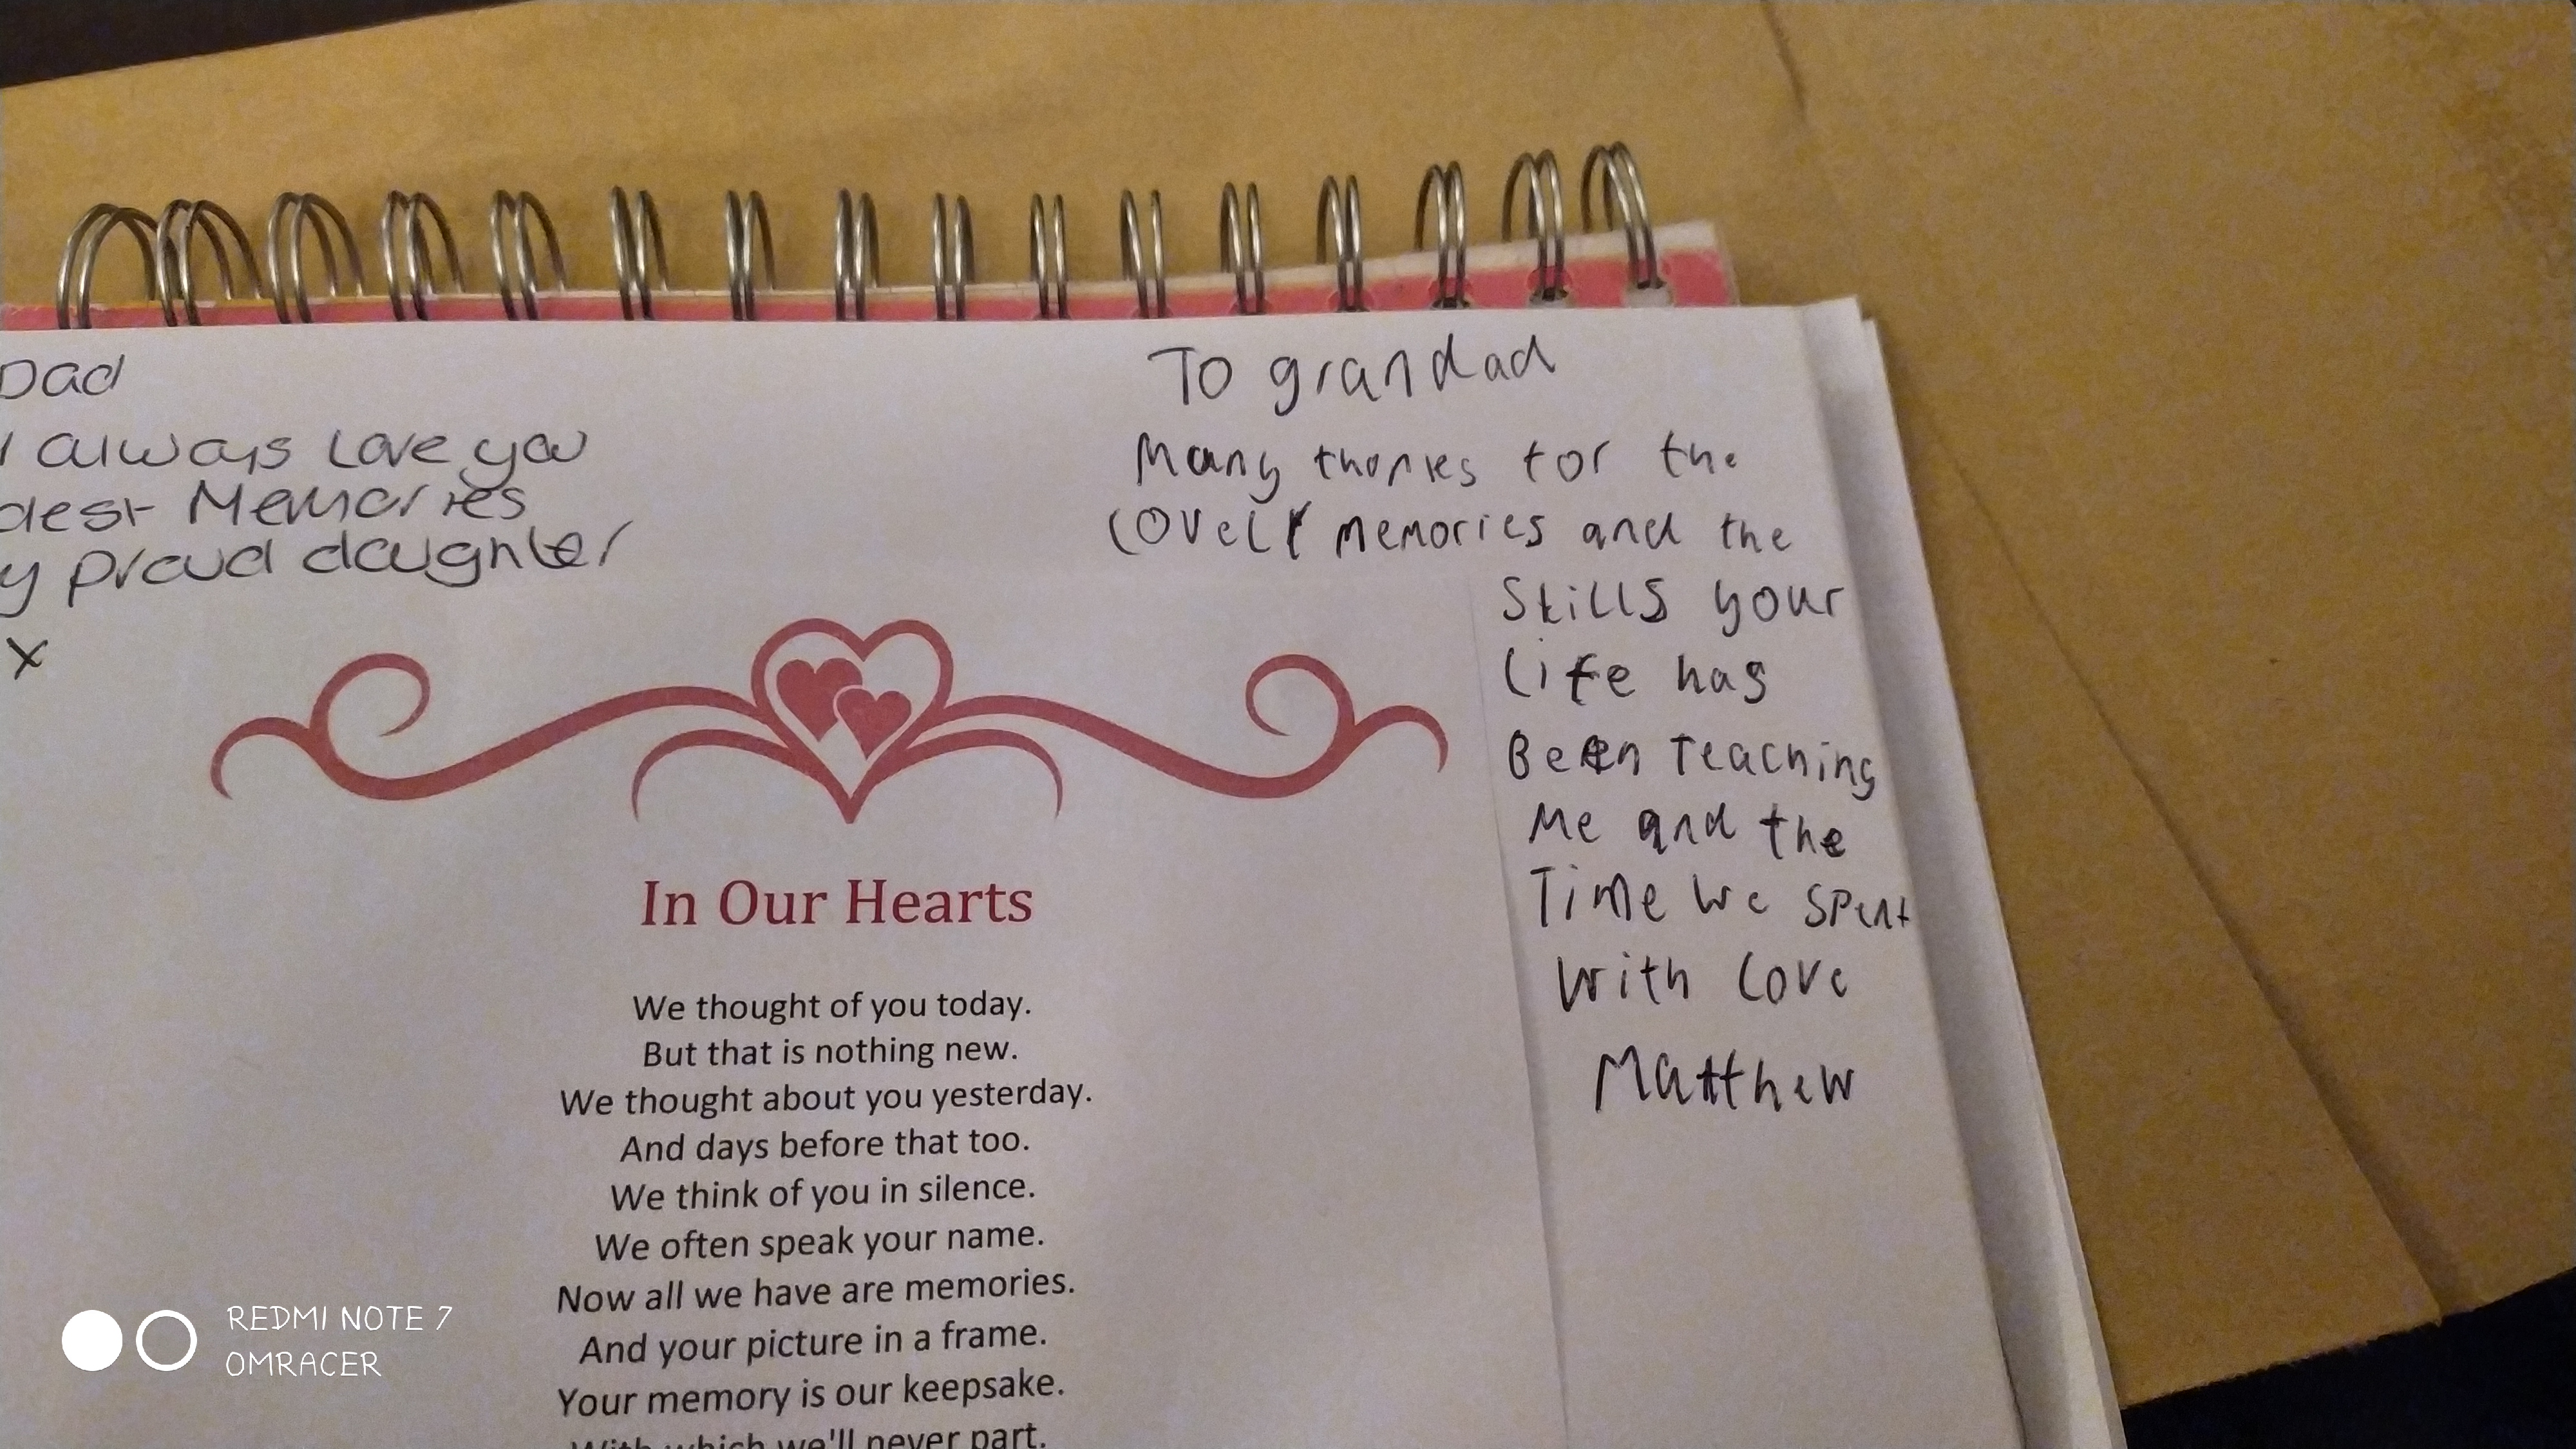 Dad
I always Love you
dest Memories
y proud daughter
x
To grandad
Many thanks for the
lovely memories and the
Skills your
life has
Been Teaching
Me and the
Time we spent
With love
Matthew
In Our Hearts
We thought of you today.
But that is nothing new.
We thought about you yesterday.
And days before that too.
We think of you in silence.
We often speak your name.
Now all we have are memories.
And your picture in a frame.
Your memory is our keepsake.
With which we'll never part.
REDMI NOTE 7
OMRACER